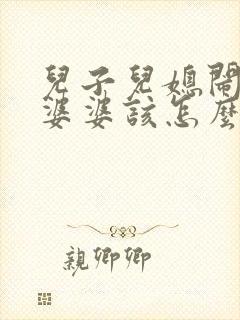 兒子兒媳鬧
婆婆該怎麼
親卿卿